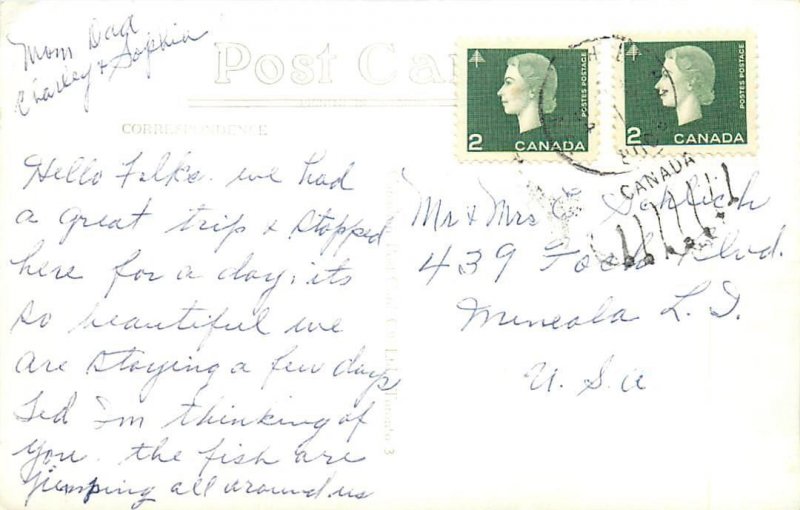 Mom Dad
Charley & Sophia
Post Ca
CORRESPONDENCE
Hello Folks. we had
a great trip & stopped
here for a day, its
so beautiful we
are staying a few days
Ted I'm thinking of
you. the fish are
jumping all around us
2 CANADA
POSTES POSTAGE
2 CANADA
POSTES POSTAGE
CANADA
Mr & Mrs Schlich
439 Foch Blvd.
Mineola L. I.
U. S. A